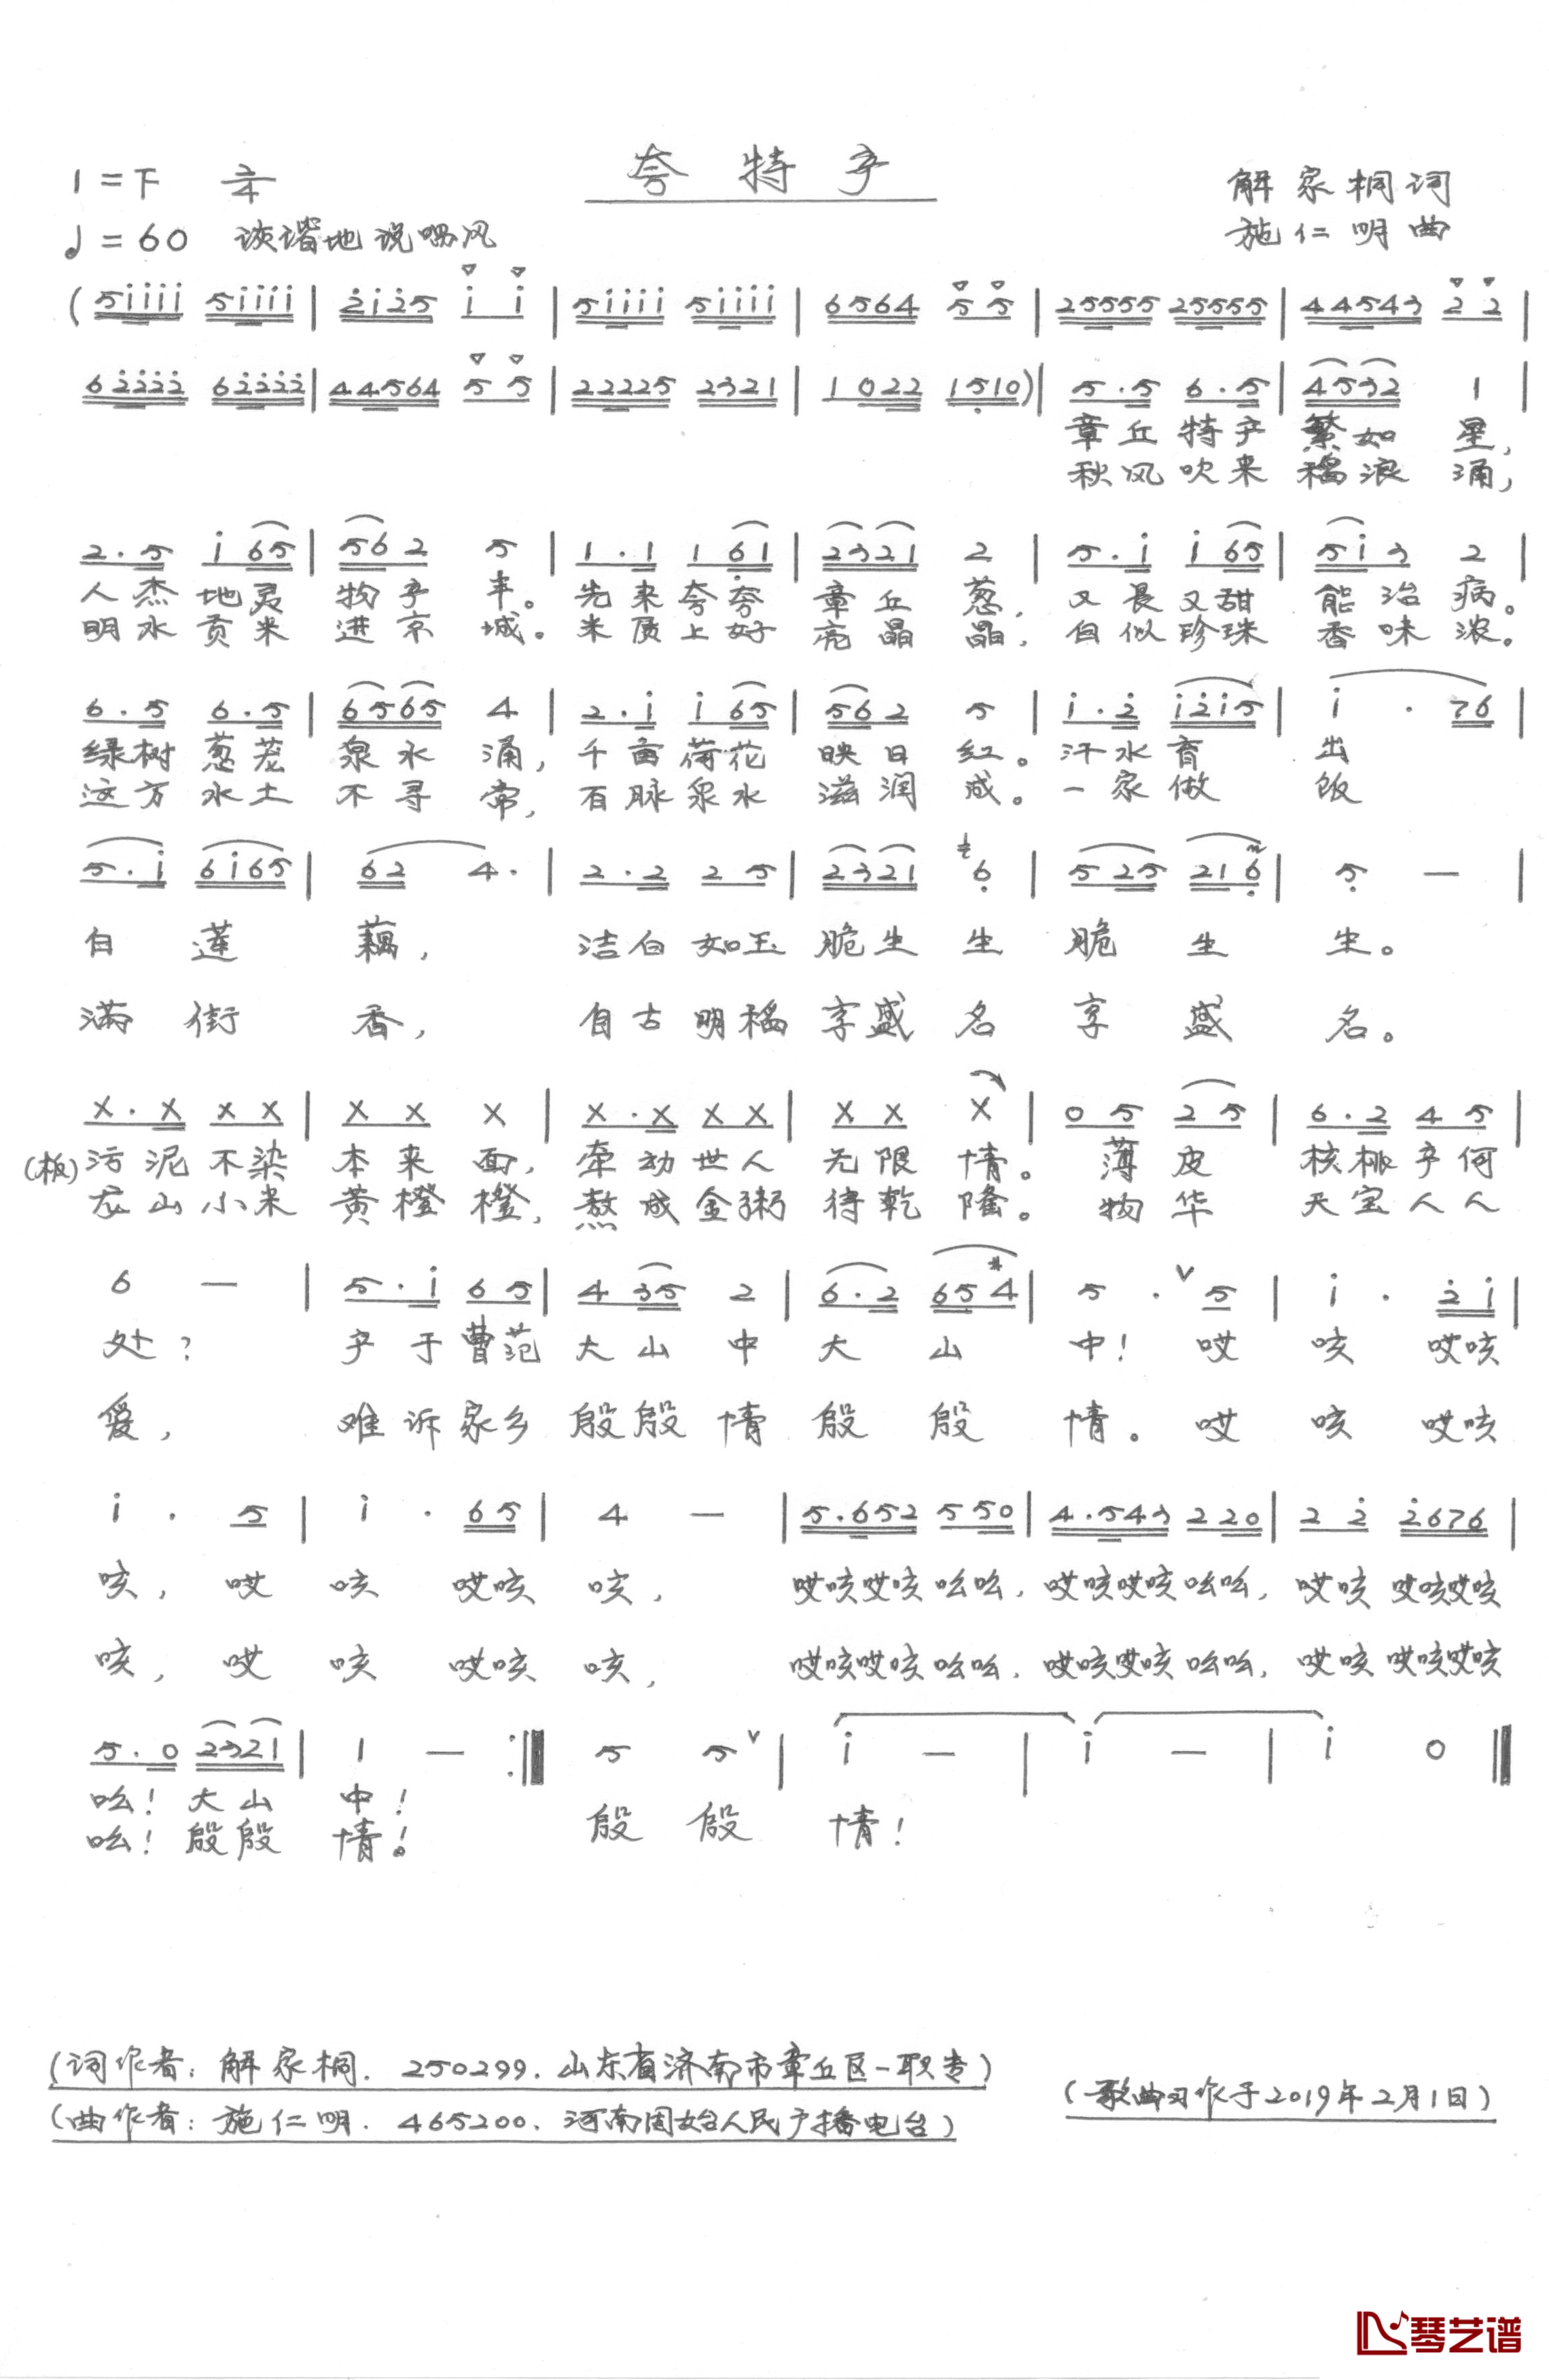 夸特产
1=F 2/4
解家桐词
♩=60 诙谐地说唱风
施仁明曲
(5i̇i̇i̇i̇ 5i̇i̇i̇i̇ | 2̇i̇2̇5 i̇ i̇ | 5i̇i̇i̇i̇ 5i̇i̇i̇i̇ | 6564 5 5 | 25555 25555 | 44543 2̇ 2̇ |
62̇2̇2̇2̇ 62̇2̇2̇2̇ | 44564 5 5 | 22225 2321 | 1 022 15̣10) | 5·5 6·5 | 4532 1 |
章丘特产 繁如 星,
秋风吹来 稻浪 涌,
2·5 i̇ 65 | 562 5 | 1·1 1 6̣1 | 2321 2 | 5·i̇ i̇ 65 | 5i̇3 2 |
人杰地灵 物产 丰。 先来夸夸 章丘 葱, 又長又甜 能治 病。
明水贡米 进京 城。 米质上好 亮晶 晶, 白似珍珠 香味 浓。
6·5 6·5 | 6565 4 | 2·i̇ i̇ 65 | 562 5 | i̇·2̇ i̇2̇i̇5 | i̇ · 76 |
绿树葱茏 泉水 涌, 千亩荷花 映日 红。 汗水育 出
这方水土 不寻 常, 百脉泉水 滋润 成。 一家做 饭
5·i̇ 6i̇65 | 62 4· | 2·2 2 5 | 2321 ♮6̣ | 525 216̣ | 5̣ — |
白 莲 藕, 洁白如玉 脆生 生 脆 生 生。
满 街 香, 自古明稻 享盛 名 享 盛 名。
X·X X X | X X X | X·X X X | X X X | 0 5 2 5 | 6·2 4 5 |
(板)污泥不染 本来 面, 牵动世人 无限 情。 薄 皮 核桃产何
龙山小米 黄橙 橙, 熬成金粥 待乾 隆。 物 华 天宝人人
6 — | 5·i̇ 65 | 4 35 2 | 6·2 65#4 | 5 · ∨5 | i̇ · 2̇i̇ |
处? 产于曹范 大山 中 大 山 中! 哎 咳 哎咳
爱, 难诉家乡 殷殷 情 殷 殷 情。 哎 咳 哎咳
i̇ · 5 | i̇ · 65 | 4 — | 5·652 550 | 4·543 220 | 2 2̇ 2̇676 |
咳, 哎 咳 哎咳 咳, 哎咳哎咳吆吆, 哎咳哎咳吆吆, 哎咳 哎咳哎咳
咳, 哎 咳 哎咳 咳, 哎咳哎咳吆吆, 哎咳哎咳吆吆, 哎咳 哎咳哎咳
5·0 2321 | 1 — :‖ 5 5∨ | i̇ — | i̇ — | i̇ 0 ‖
吆! 大山 中!
殷 殷 情!
吆! 殷殷 情!
(词作者: 解家桐. 250299. 山东省济南市章丘区一职专)
(歌曲习作于2019年2月1日)
(曲作者: 施仁明. 465200. 河南固始人民广播电台)
琴艺谱